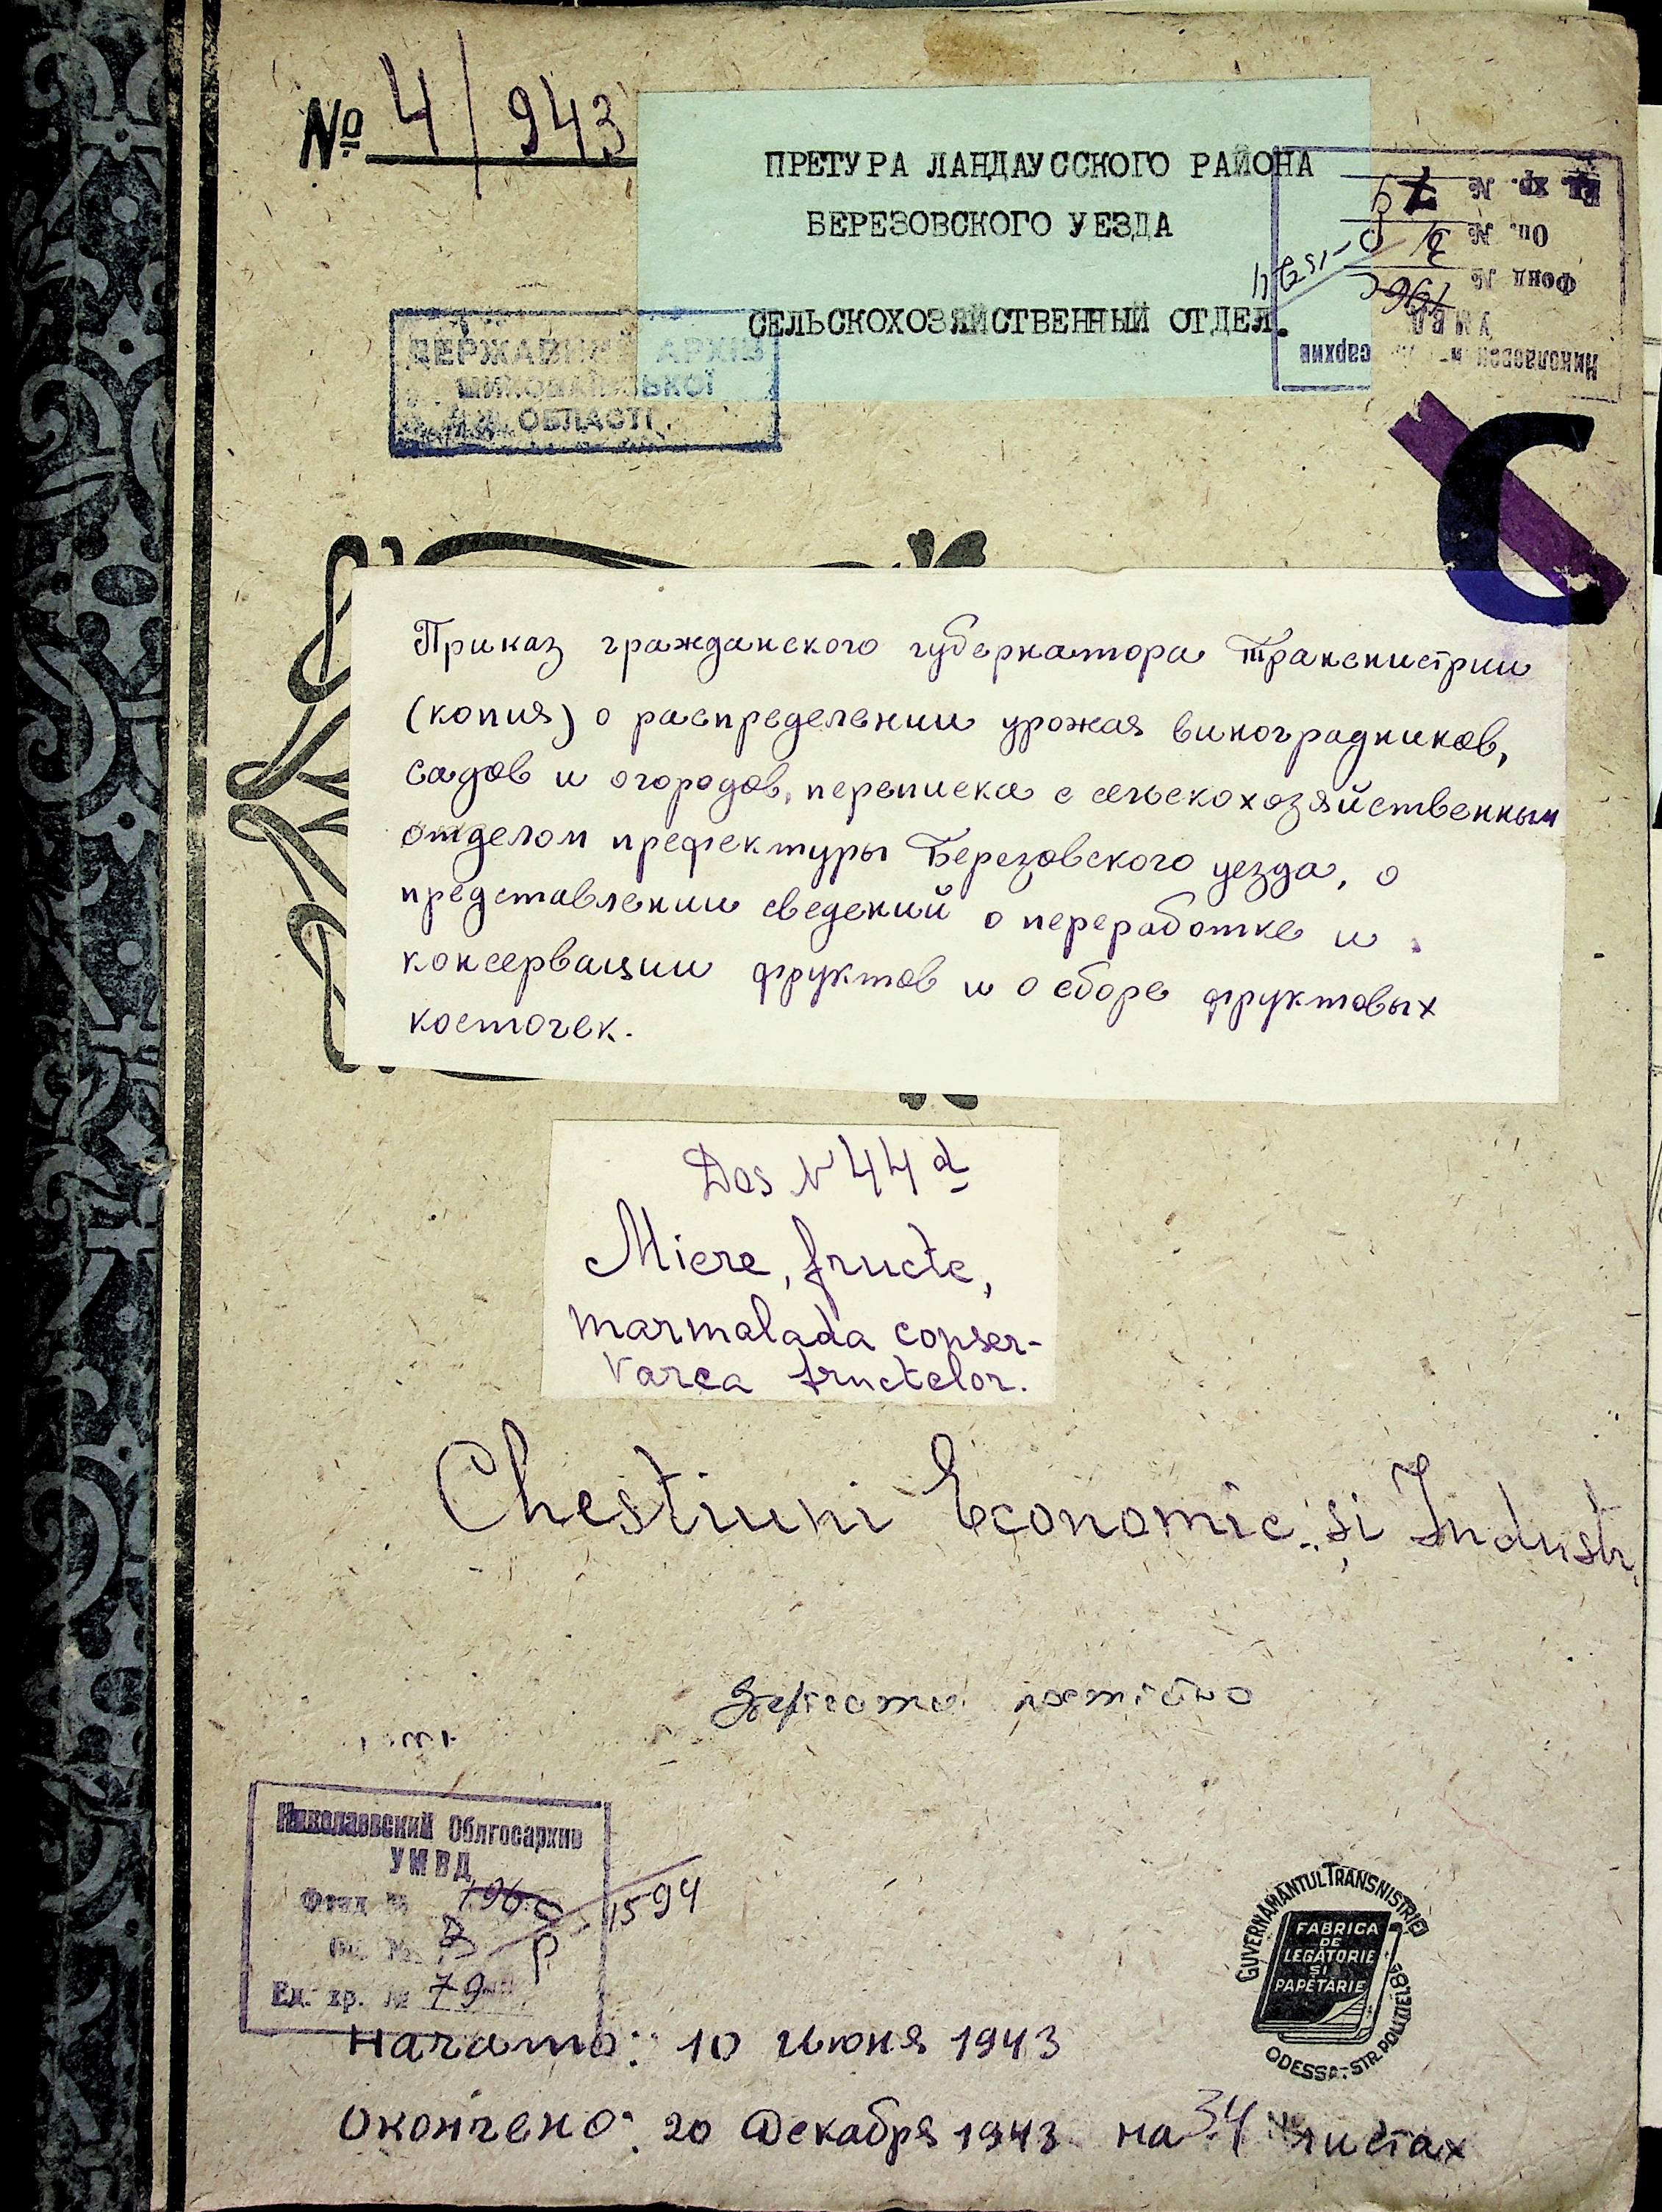 № 4/943
ПРЕТУРА ЛАНДАУССКОГО РАЙОНА
БЕРЕЗОВСКОГО УЕЗДА
СЕЛЬСКОХОЗЯЙСТВЕННЫЙ ОТДЕЛ.
Николаевский Облгосархив
УМВД
Фонд № 796с
Оп. № 3
Ед. хр. № 79
ДЕРЖАВНИЙ АРХІВ
МИКОЛАЇВСЬКОЇ
ОБЛАСТІ
С
Приказ гражданского губернатора Транснистрии
(копия) о распределении урожая виноградников,
садов и огородов, переписка с сельскохозяйственным
отделом префектуры Березовского уезда, о
представлении сведений о переработке и
консервации фруктов и о сборе фруктовых
косточек.
Dos N 44 d
Miere, fructe,
marmalada conser-
varea fructelor.
Chestiuni Economic. și Industr.
Николаевский Облгосархив
УМВД
Фонд № 796с 1594
Оп. № 3 р
Ед. хр. № 79
GUVERNAMANTUL TRANSNISTRIEI
FABRICA
DE
LEGĂTORIE
SI
PAPETARIE
ODESSA-STR. POLITIEI 8
Начато: 10 июня 1943
Окончено: 20 декабря 1943 на 34 листах